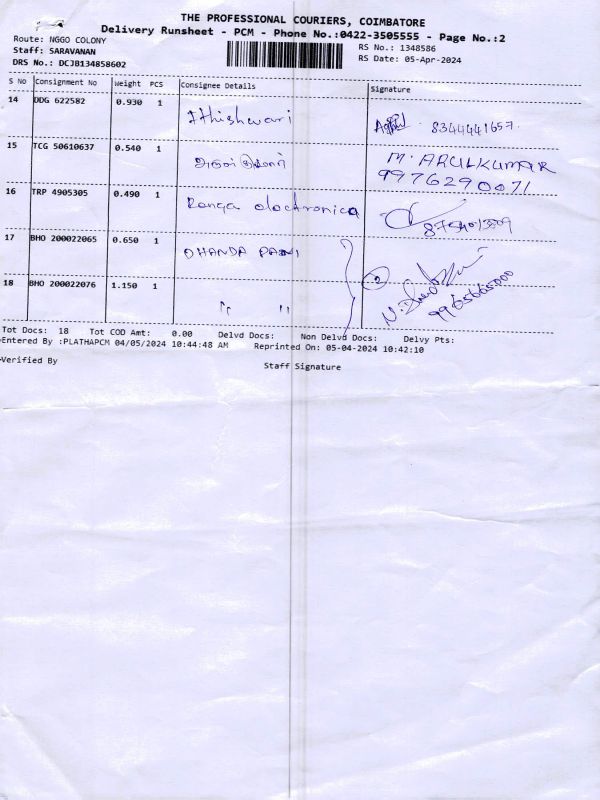 THE PROFESSIONAL COURIERS, COIMBATORE
Delivery Runsheet - PCM - Phone No.:0422-3505555 - Page No.:2
Route: NGGO COLONY
Staff: SARAVANAN
DRS No.: DCJB134858602
RS No.: 1348586
RS Date: 05-Apr-2024
S No Consignment No Weight PCS Consignee Details Signature
14 DDG 622582 0.930 1 Athishwari 8344441657
15 TCG 50610637 0.540 1 அருள்குமார் M. ARULKUMAR
9976290071
16 TRP 4905305 0.490 1 Ranga electronics
17 BHO 200022065 0.650 1 DHANDA PANI
18 BHO 200022076 1.150 1 " " 2
Tot Docs: 18 Tot COD Amt: 0.00 Delvd Docs: Non Delvd Docs: Delvy Pts:
Entered By :PLATHAPCM 04/05/2024 10:44:48 AM Reprinted On: 05-04-2024 10:42:10
Verified By
Staff Signature